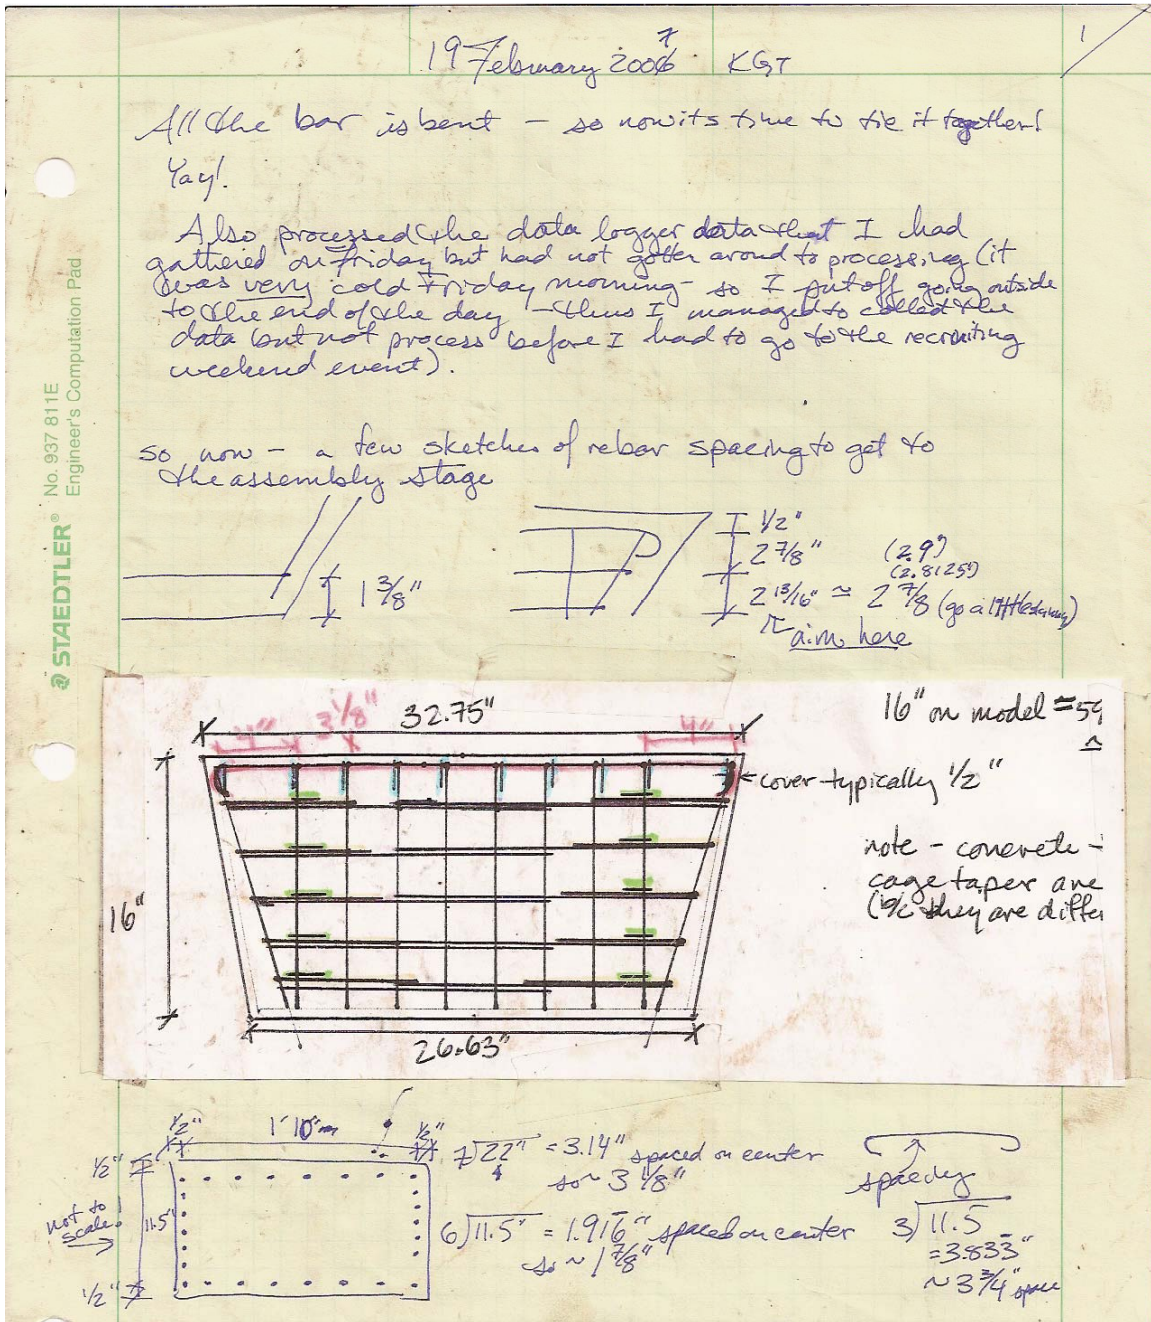 19 February 2007 KGT
1
All the bar is bent – so now its time to tie it together!
Yay!
Also processed the data logger data that I had
gathered on Friday but had not gotten around to processing (it
was very cold Friday morning – so I put off going outside
to the end of the day – thus I managed to collect the
data but not process before I had to go to the recruiting
weekend event).
so now – a few sketches of rebar spacing to get to
the assembly stage
STAEDTLER® No. 937 811E
Engineer's Computation Pad
1 3/8"
1/2"
2 7/8" (2.9")
(2.8125")
2 13/16" ≃ 2 7/8 (go a little)
aim here
32.75"
4" 3 1/8" 4"
16"
26.63"
16" on model = 59
cover typically 1/2"
note – concrete –
cage taper are
(b/c they are diffe
1/2" 1' 10" 1/2"
1/2"
11.5"
1/2"
not to
scale!
7)22" = 3.14" spaced on center
so ~ 3 1/8"
6)11.5" = 1.916" spaced on center
so ~ 1 7/8"
spacing
3)11.5
= 3.833"
~ 3 3/4" space